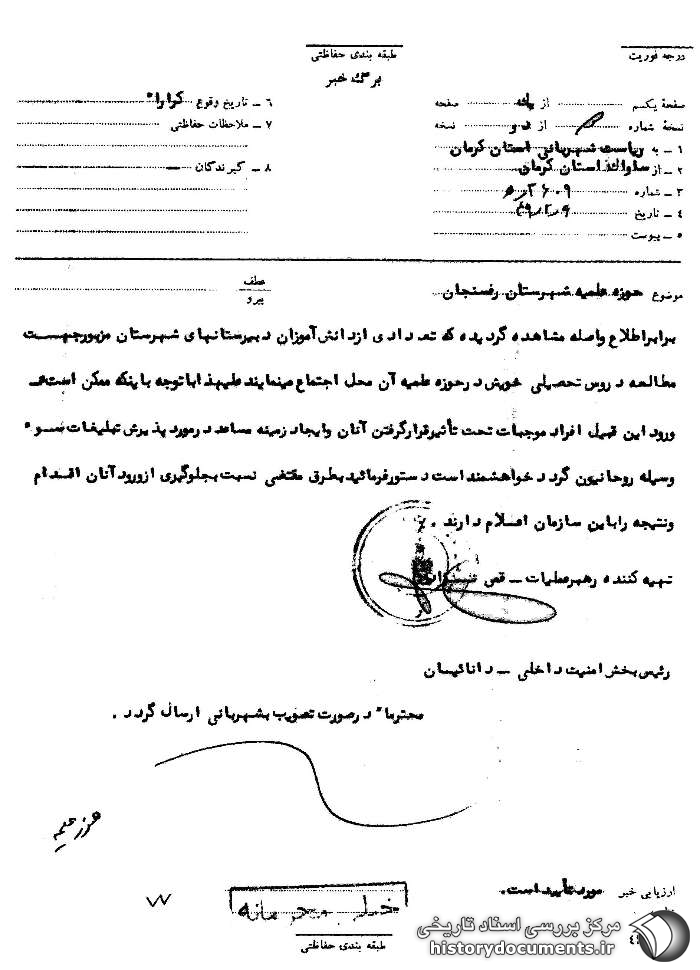 درجه فوریت
طبقه بندی حفاظتی
برگ خبر
صفحهٔ یکم از یک صفحه
نسخهٔ شماره از دو نسخه
۱ ـ به ریاست شهربانی استان کرمان
۲ ـ از ساواک استان کرمان
۳ ـ شماره
۴ ـ تاریخ
۵ ـ پیوست
۶ ـ تاریخ وقوع کرارا"
۷ ـ ملاحظات حفاظتی
۸ ـ گیرندگان
موضوع حوزه علمیه شهرستان رفسنجان
عطف
پیرو
برابر اطلاع واصله مشاهده گردیده که تعدادی از دانش‌آموزان دبیرستانهای شهرستان مزبور جهت
مطالعه دروس تحصیلی خویش در حوزه علمیه آن محل اجتماع مینمایند علیهذا با توجه باینکه ممکن است
ورود این قبیل افراد موجبات تحت تأثیر قرار گرفتن آنان و ایجاد زمینه مساعد در مورد پذیرش تبلیغات سوء
وسیله روحانیون گردد خواهشمند است دستور فرمائید بطرق مقتضی نسبت بجلوگیری از ورود آنان اقدام
و نتیجه را باین سازمان اعلام دارند .
تهیه کننده رهبر عملیات ـ
رئیس بخش امنیت داخلی ـ دانائیان
محترما" در صورت تصویب بشهربانی ارسال گردد .
ارزیابی خبر مورد تأیید است.
خیلی محرمانه
طبقه بندی حفاظتی
مرکز بررسی اسناد تاریخی
historydocuments.ir